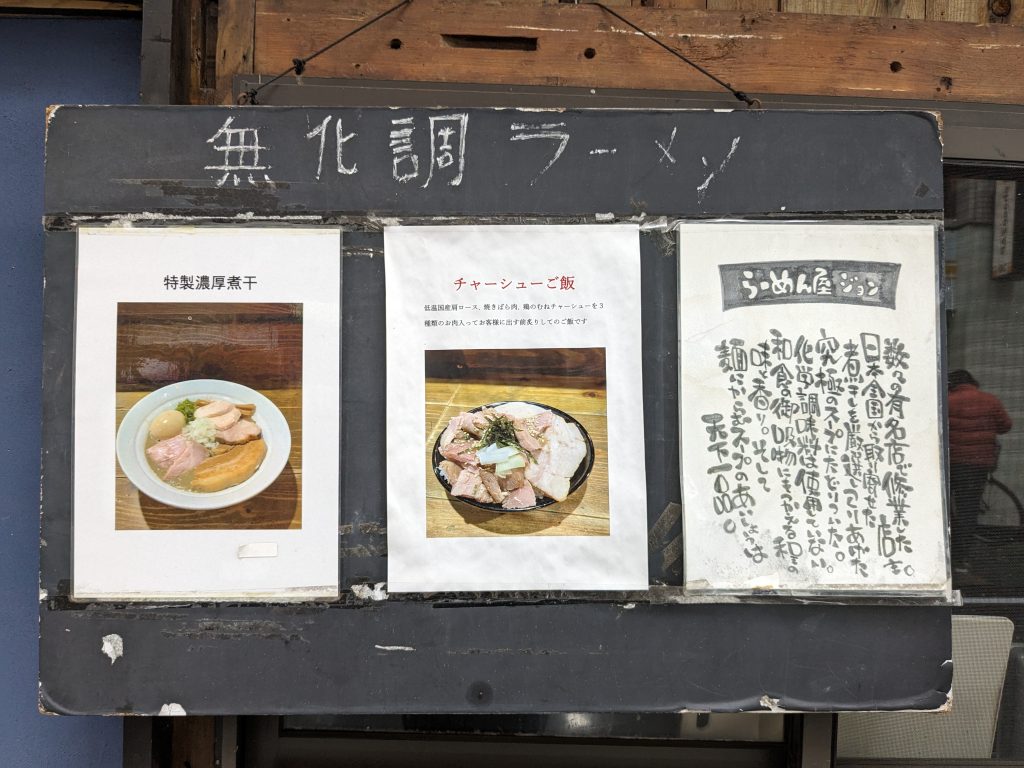 無化調ラーメン
特製濃厚煮干
チャーシューご飯
低温国産肩ロース、焼きばら肉、鶏のむねチャーシューを3
種類のお肉入ってお客様に出す前炙りしてのご飯です
らーめん屋ジョン
数々の有名店で修業した
日本全国から取り寄せた
煮干を厳選してしあげた
究極のスープにたどりついた。
化学調味料は使用していない。
和食の御吸物に
味・香り。そして
麺にからむスープのあいしょうは
天下一品。